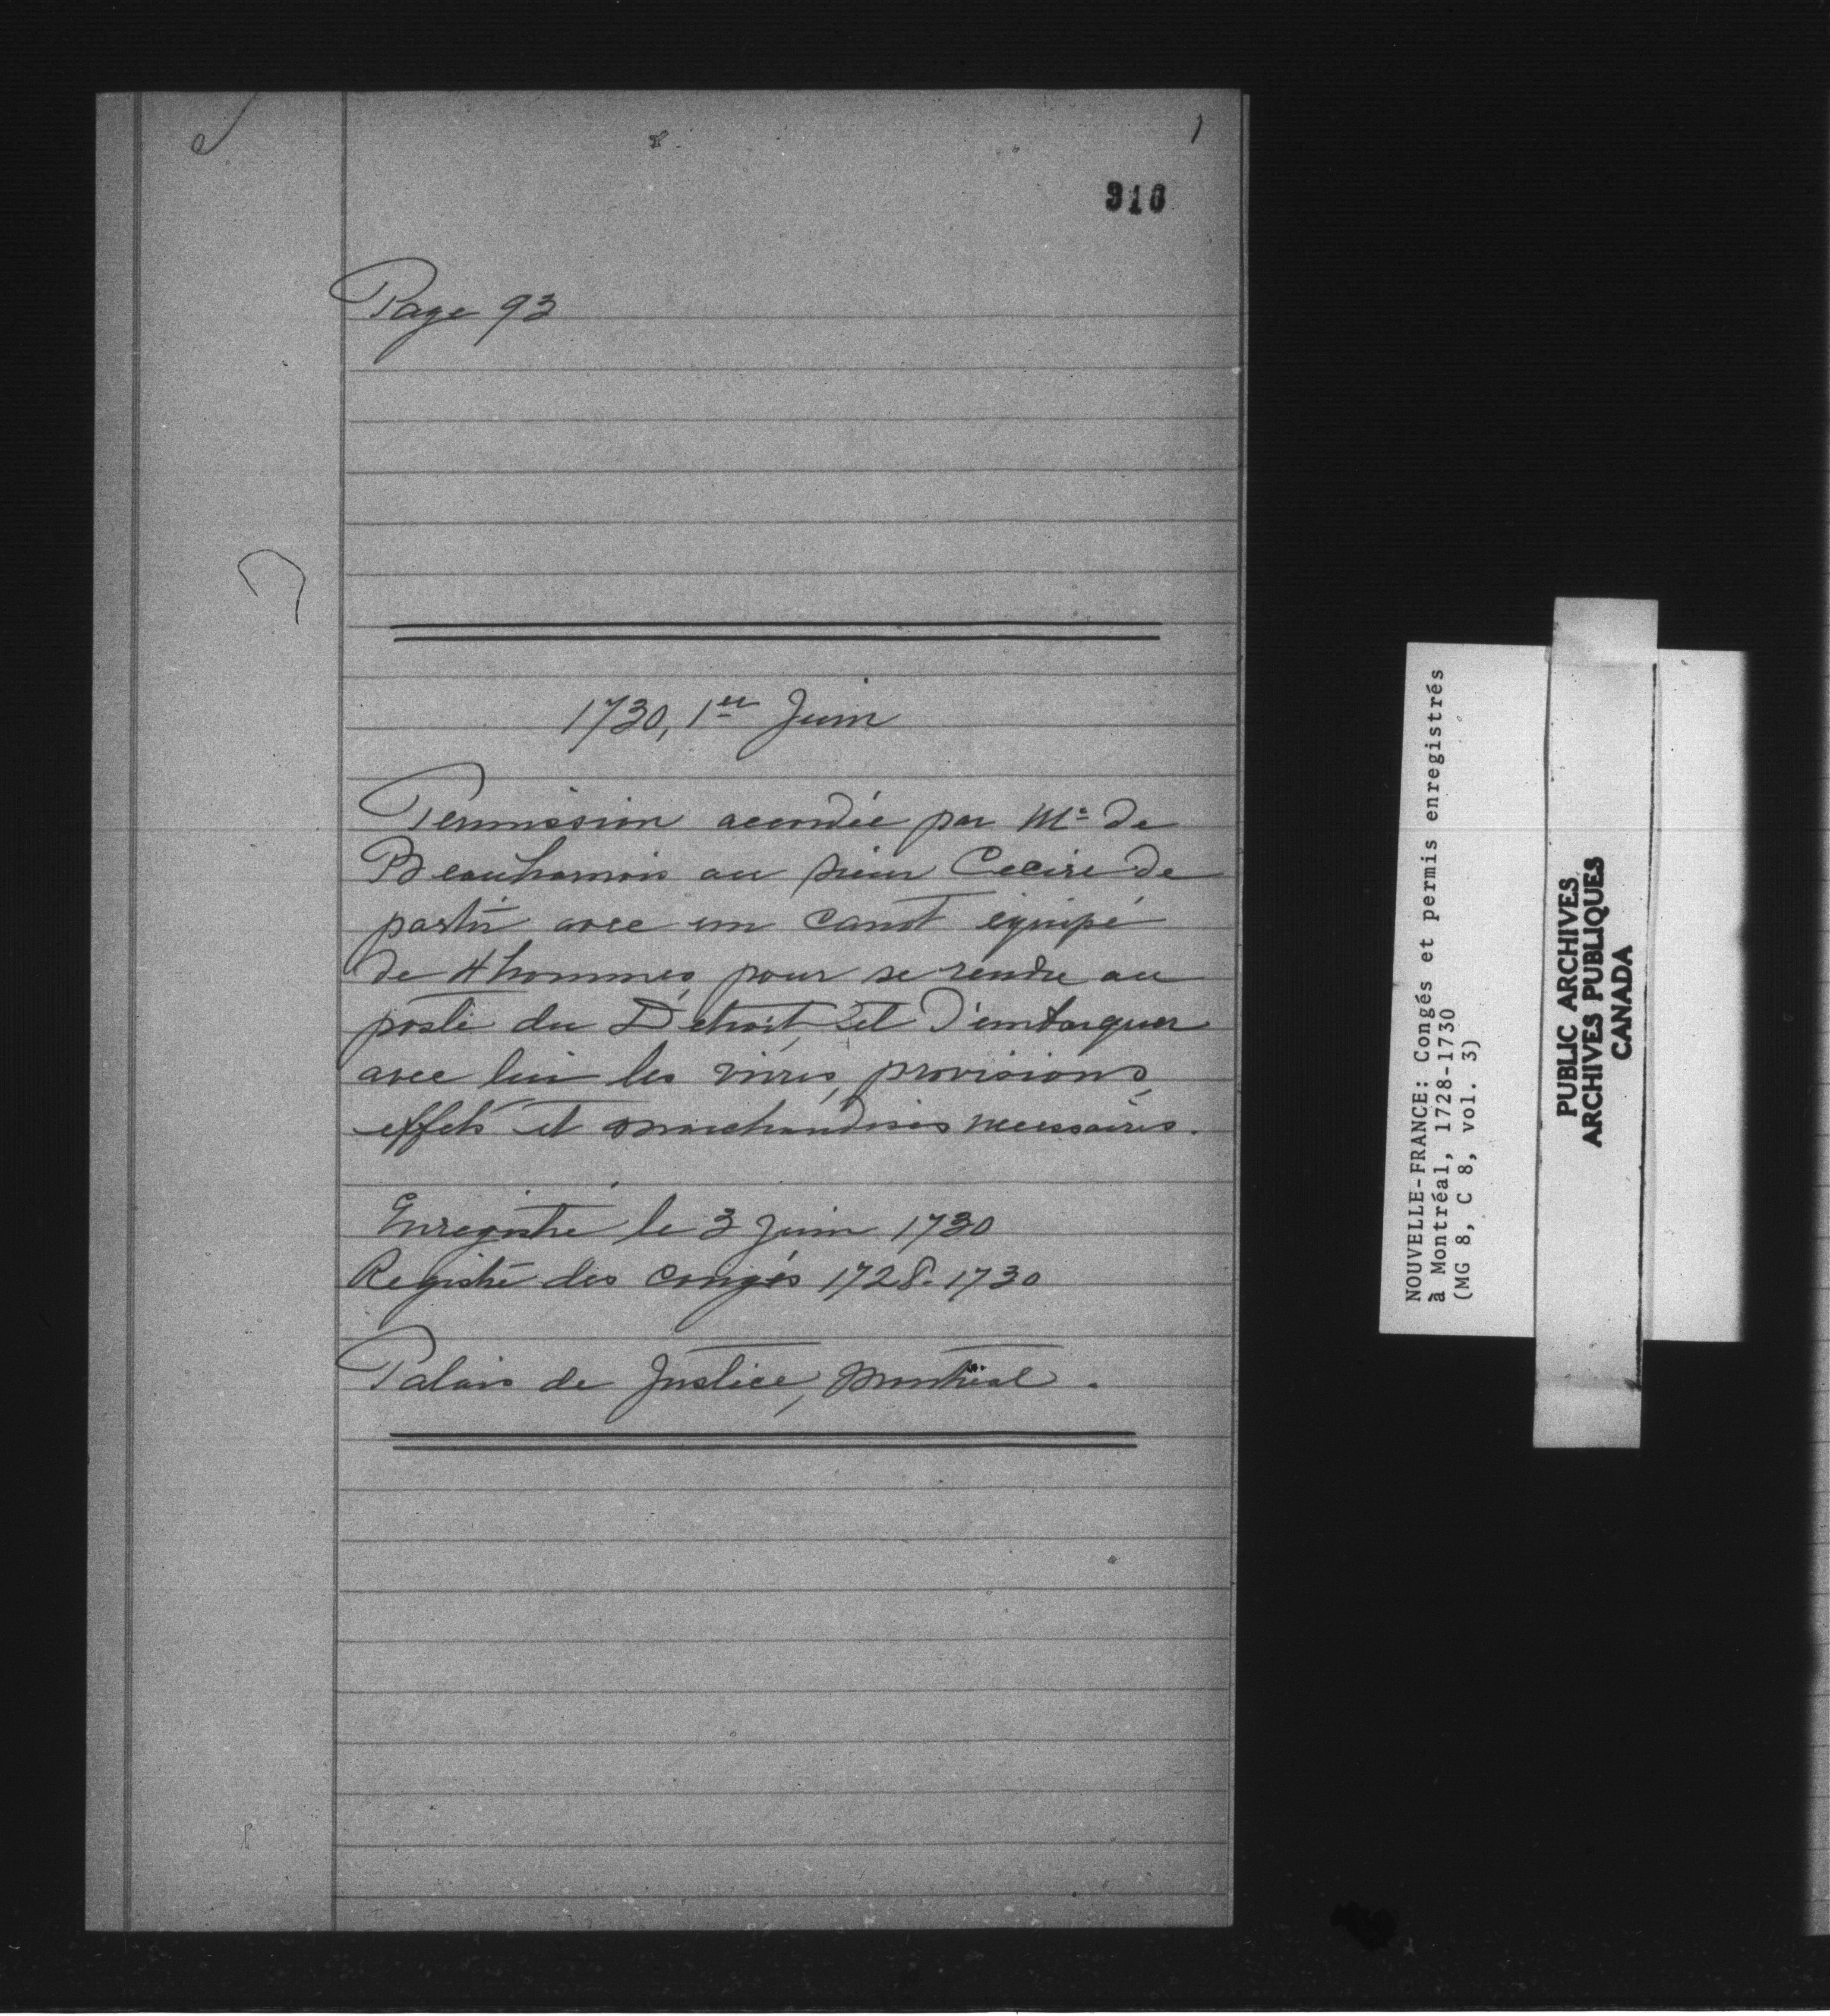 316
Page 93
1730, 1er Juin
Permission accordée par Mr de
Beauharnois au sieur Cecire de
partir avec un canot équipé
de 4 hommes, pour se rendre au
poste du Détroit, et d'embarquer
avec lui les vivres, provisions,
effets et marchandises necessaires.
Enregistré le 3 Juin 1730
Registre des congés 1728-1730
Palais de Justice, Montréal.
NOUVELLE-FRANCE: Congés et permis enregistrés
à Montréal, 1728-1730
(MG 8, C 8, vol. 3)
PUBLIC ARCHIVES
ARCHIVES PUBLIQUES
CANADA